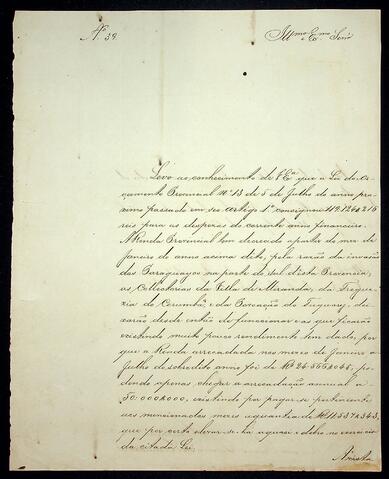 Nº 39.
Illmo. e Exmo. Senr.
Levo ao conhecimento de V. Exª que a Lei do Or-
çamento Provincial nº 13 de 5 de Julho do anno pro-
ximo passado em seu artigo 1º consignou
reis para as despezas do corrente anno financeiro.
A Renda Provincial tem decrecido a partir do mez de
Janeiro do anno acima dito, pela razão da invasão
dos Paraguayos na parte do sul d'esta Provincia,
as Collectorias da Villa de Miranda, da Fregue-
zia de Corumbá, e da Povoação do Taquary, dei-
xarão desde então de funccionar e as que ficarão
existindo muito pouco rendimento tem dado, por
que a Renda arrecadada nos mezes de Janeiro a
Julho do sobredito anno foi de Rs, po-
dendo apenas chegar a arrecadação annual a
30:000$000, existindo por pagar-se pertencente
aos mencionados mezes a quantia de Rs
que por certo elevar-se-ha a quasi o dobro no exercicio
da citada Lei.